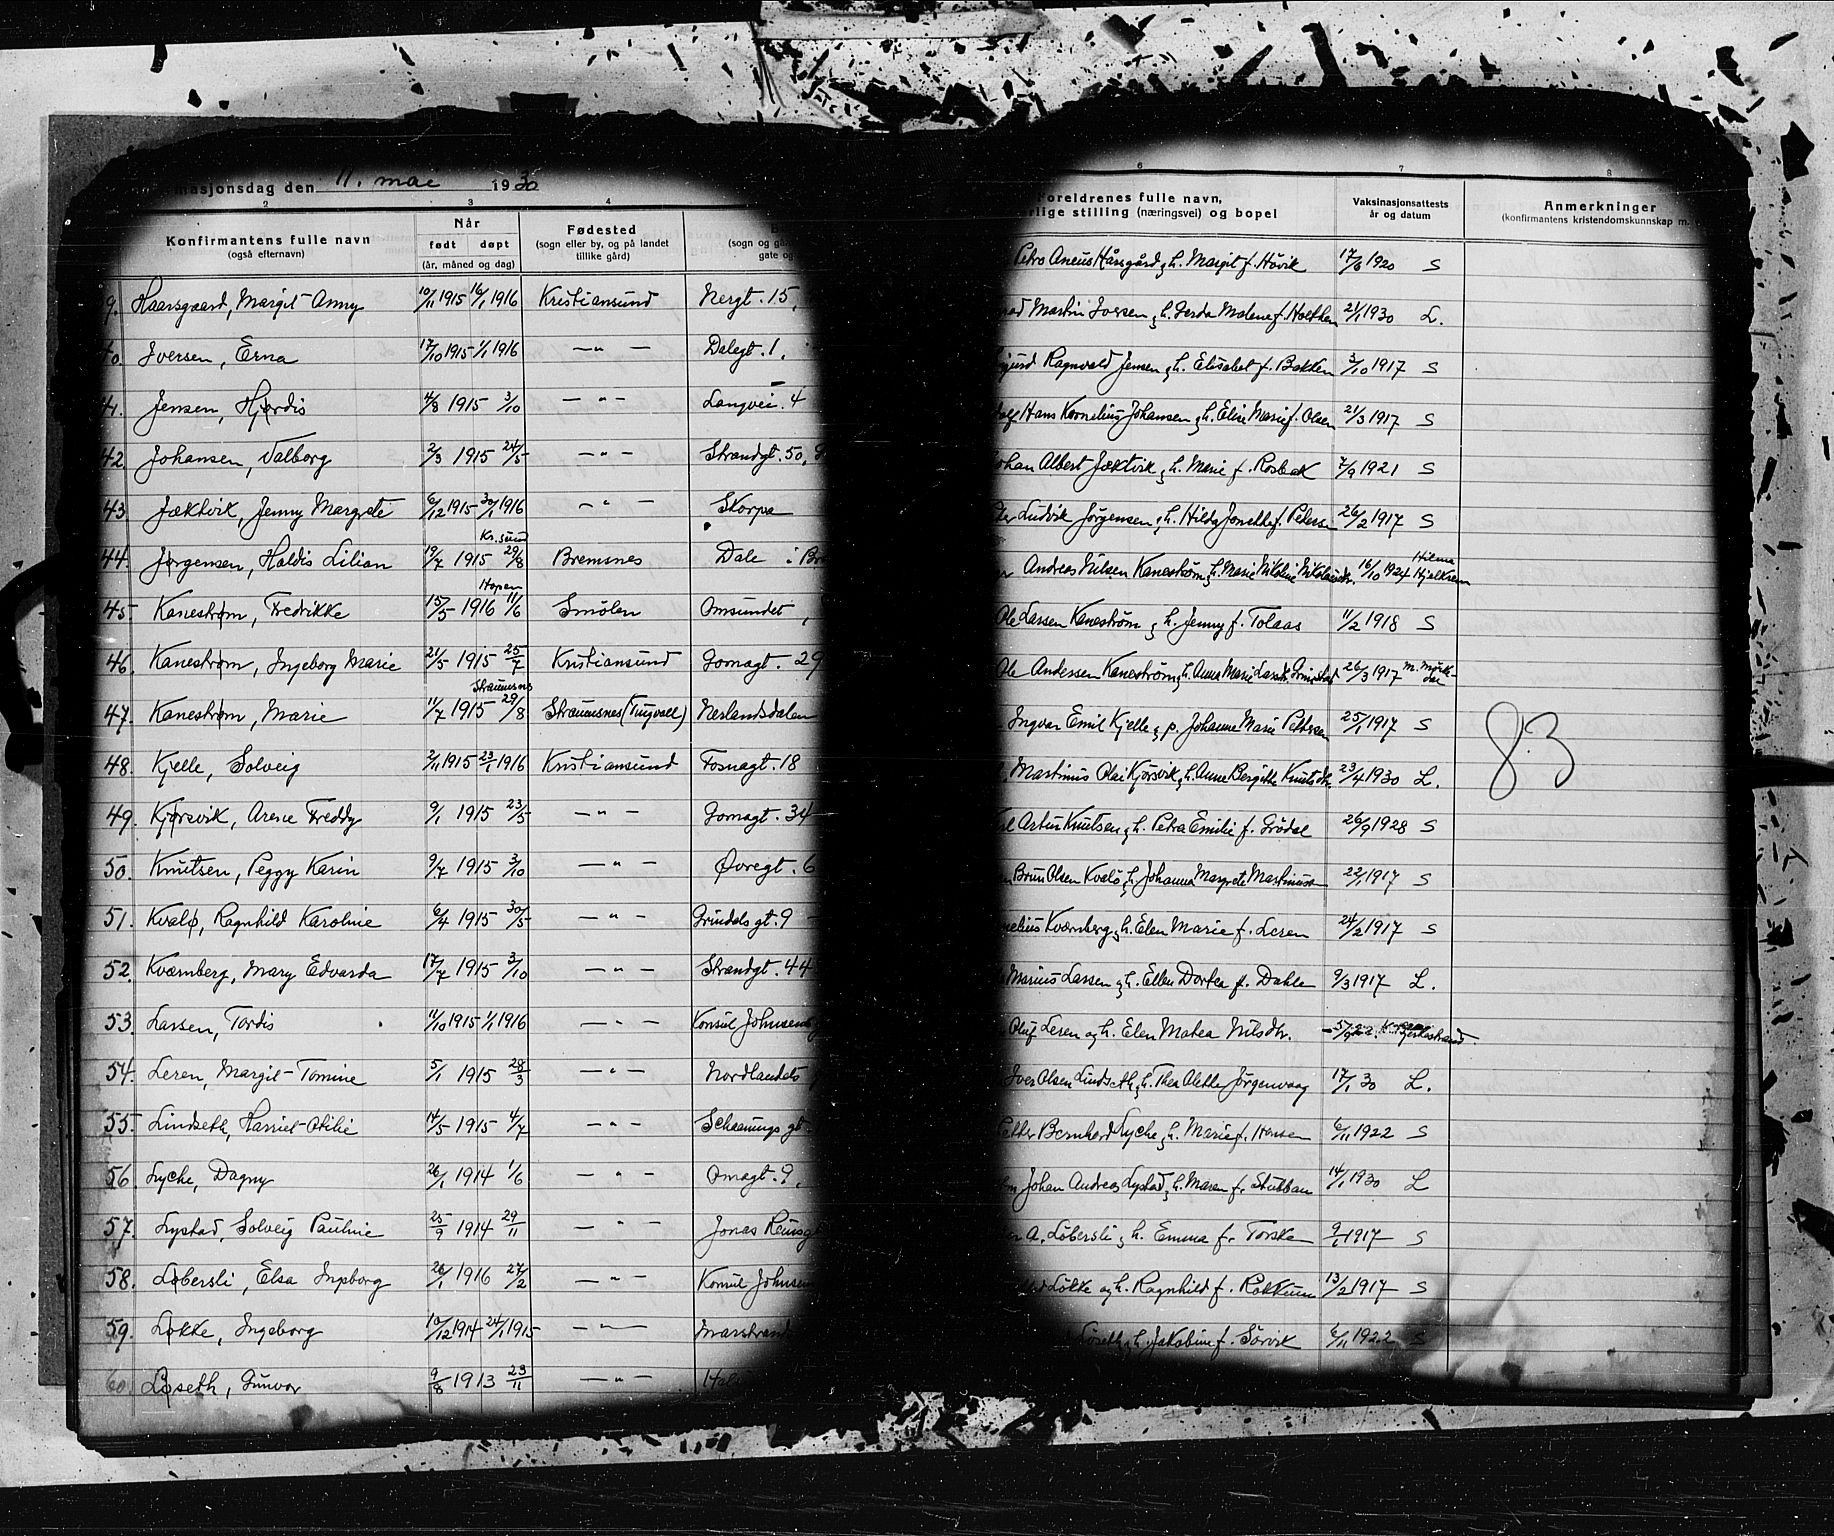 masjonsdag den 11. mai 1930
2 3 4
Konfirmantens fulle navn (også efternavn) Når født døpt (år, måned og dag) Fødested (sogn eller by, og på landet tillike gård)
9. Haarsgaard, Margit Anny 10/11 1915 16/1 1916 Kristiansund Nergt. 15,
40. Iversen, Erna 17/10 1915 1/1 1916 — " — Dalegt. 1,
41. Jensen, Hjørdis 4/8 1915 3/10 — " — Langvei. 4
42. Johansen, Valborg 2/3 1915 24/5 — " — Strandgt. 50,
43. Jæktvik, Jenny Margrete 6/12 1915 30/1 1916 — " — Skorpa
Kr.sund
44. Jørgensen, Haldis Lilian 19/7 1915 29/8 Bremsnes Dale i
Hopen
45. Kanestrøm, Fredrikke 15/5 1916 11/6 Smølen Omsundet,
46. Kanestrøm, Ingeborg Marie 21/5 1915 25/7 Kristiansund Gomagt. 29
Straumsnes
47. Kanestrøm, Marie 11/7 1915 29/8 Straumsnes (Tingvoll) Neslandsdalen
48. Kjelle, Solveig 2/11 1915 23/1 1916 Kristiansund Fosnagt. 18
49. Kjørsvik, Arene Freddy 9/1 1915 23/5 — " — Gomagt. 34
50. Knutsen, Peggy Karin 9/7 1915 3/10 — " — Øvregt. 6
51. Kvalø, Ragnhild Karoline 6/4 1915 30/5 — " — Grundels gt. 9
52. Kværnberg, Mary Edvarda 17/7 1915 3/10 — " — Strandgt. 44
53. Larsen, Tordis 11/10 1915 1/1 1916 — " — Konsul Johnsens
54. Leren, Margit Tomine 5/1 1915 28/3 — " — Nordlandets
55. Lindseth, Harriet Otilie 14/5 1915 4/7 — " — Schaanings gt
56. Lyche, Dagny 26/1 1914 1/6 — " — Omagt. 9,
57. Lystad, Solveig Pauline 25/9 1914 29/11 — " — Jonas Reinsg
58. Løbersli, Elsa Ingeborg 26/1 1916 27/2 — " — Konsul Johnsen
59. Løkke, Ingeborg 10/12 1914 24/1 1915 — " — Marstrand
60. Løseth, Gunvor 9/8 1913 23/11 — " —
6 7 8
Foreldrenes fulle navn, rlige stilling (næringsvei) og bopel Vaksinasjonsattests år og datum Anmerkninger (konfirmantens kristendomskunnskap m.
Petro Aneus Hårsgård, h. Margit f. Håvik 17/6 1920 S
Martin Iversen, h. Gerda Malene f. Holthen 21/1 1930 L.
Ragnvald Jensen, h. Elisabet f. Bakken 3/10 1917 S
Hans Kornelius Johansen, h. Elise Marie f. Olsen 21/3 1917 S
Johan Albert Jæktvik, h. Marie f. Rosbak 7/9 1921 S
Ludvik Jørgensen, h. Hilda f. Peters 26/2 1917 S
Andreas Nilsen Kanestrøm, h. Marie Nikoline 16/10 1924
Ole Larsen Kanestrøm, h. Jenny f. Tolaas 11/2 1918 S
Ole Andersen Kanestrøm, h. Anna Marie 26/3 1917
Ingvar Emil Kjelle, p. Johanne Marie Pettersen 25/1 1917 S
83
Martinus Olai Kjørsvik, h. Anne Bergitte Knutsdtr. 23/4 1930 L.
Artur Knutsen, h. Petra Emilie f. Grødal 26/9 1928 S
Brun Olsen Kvalø, h. Johanna Margrete Martinusen 22/1 1917 S
Kværnberg, h. Elen Marie f. Leren 24/2 1917 S
Marius Larsen, h. Ellen Dortea f. Dahle 9/3 1917 L.
Oluf Leren og h. Elen Matea Nilsdtr.
Iver Olsen Lindseth, h. Thea Alette Jørgenvaag 17/1 30 L.
Petter Bernhard Lyche, h. Marie f. Hansen 6/11 1922 S
Johan Andreas Lystad, h. Maren f. Stubban 14/1 1930 L
A. Løbersli, h. Emma f. Torske 9/1 1917 S
Løkke og h. Ragnhild f. Rokkum 13/2 1917 S
Løseth, h. Jakobine f. Sørvik 6/11 1922 S